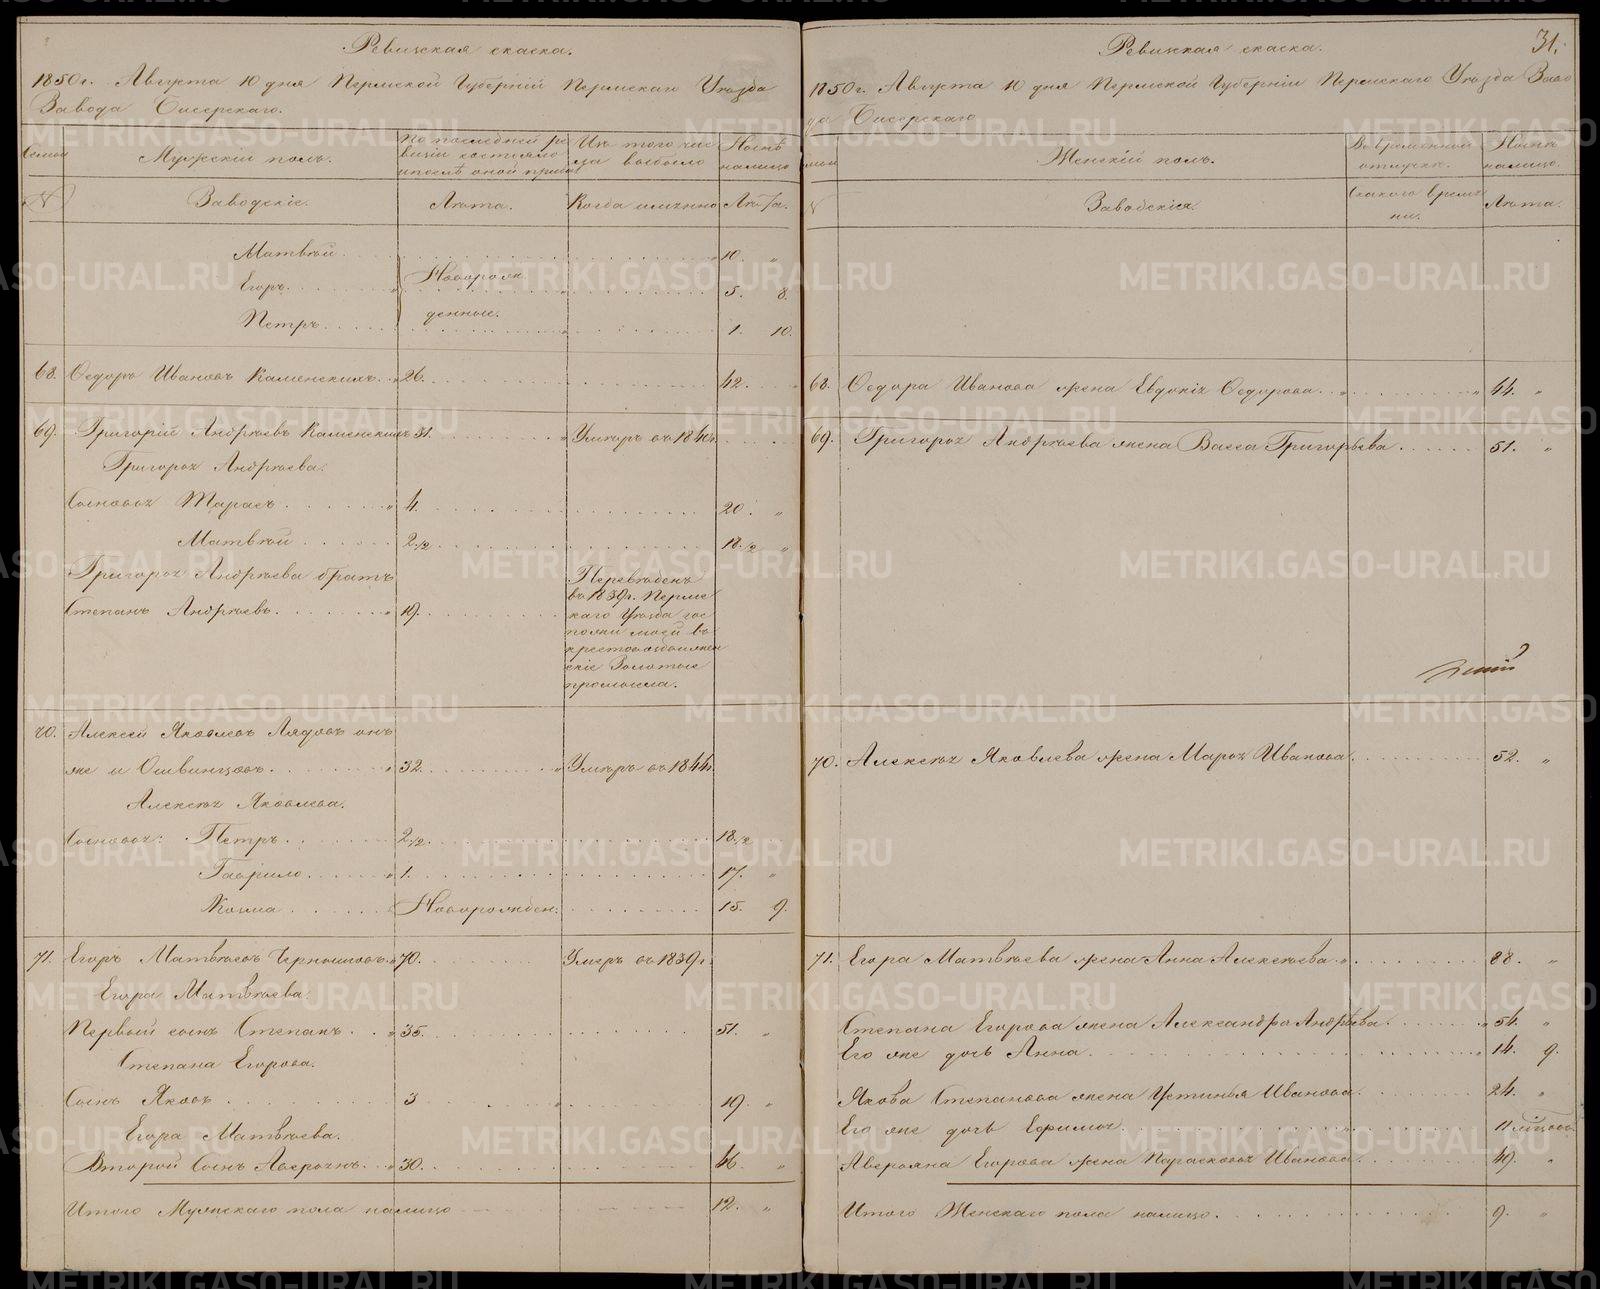 Ревизская сказка.
1850г. Августа 10 дня Пермской Губернiи Пермскаго Уезда
Завода Бисерскаго.
Семьи
Мужскiй полъ.
По последней ре
визiи состояло
и после оной прибыл
Изъ того чис
ла выбыло
Ныне
налицо
№
Заводскiе.
Лета.
Когда имянно
Лета.
Матвей 10. "
Егоръ 5. 8.
Петръ 1. 10.
Новорож
денные.
68. Федоръ Ивановъ Каменскихъ 26. 42.
69. Григорiй Андреевъ Каменскихъ 31. Умеръ въ 1840г.
Григорья Андреева.
Сыновья Тарасъ 4. 20. "
Матвей 2 1/2. 18 1/2 "
Григорья Андреева братъ
Степанъ Андреевъ. 19.
Переведенъ
въ 1839г. Пермс
каго Уезда гос
пожи моей въ
крестовоздвижен
скiе Золотые
промысла.
70. Алексей Яковлевъ Лядовъ онъ
же и Ошвинцовъ. 32. Умеръ въ 1844г.
Алексея Яковлева.
Сыновья: Петръ 2 1/2. 18 1/2
Гаврило 1. 17. "
Козма Новорожден. 15. 9.
71. Егоръ Матвеевъ Чернышовъ 70. Умеръ въ 1839г.
Егора Матвеева.
Первый сынъ Степанъ 35. 51. "
Степана Егорова.
Сынъ Яковъ 3 19. "
Егора Матвеева.
Второй Сынъ Аверьянъ 30. 46. "
Итого Мужскаго пола налицо 12. "
31.
Ревизская сказка.
1850г. Августа 10 дня Пермской Губернiи Пермскаго Уезда Заво
да Бисерскаго
Семьи
Женскiй полъ.
Во временной
отлучке.
Ныне
налицо.
№
Заводскiя.
Съкакого време
ни.
Лета.
68. Федора Иванова жена Евдокiя Федорова 44. "
69. Григорья Андреева жена Васса Григорьева 51. "
70. Алексея Яковлева жена Марья Иванова 52. "
71. Егора Матвеева жена Анна Алексеева 88. "
Степана Егорова жена Александра Андреева 54. "
Его же дочь Анна 14. 9.
Якова Степанова жена Устинья Иванова 24. "
Его же дочь Ефимья 11 месяцовъ.
Аверьяна Егорова жена Парасковья Иванова 49. "
Итого Женскаго пола налицо. 9. "
METRIKI.GASO-URAL.RU